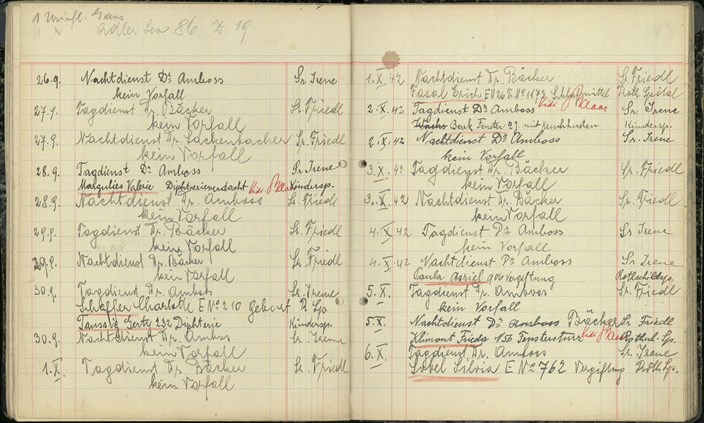 Adler Lea 86 Z. 19
26.9. Nachtdienst Dr Amboss Sr Irene
kein Vorfall
27.9. Tagdienst Dr. Bäcker Sr. Friedl
kein Vorfall
27.9. Nachtdienst Dr. Lackenbacher Sr. Friedl
kein Vorfall
28.9. Tagdienst Dr. Amboss Sr Irene
Margulies Valerie Diphterieverdacht Kindersp.
28.9. Nachtdienst Dr. Amboss Sr. Friedl
kein Vorfall
29.9. Tagdienst Dr. Bäcker Sr. Friedl
kein Vorfall
29.9. Nachtdienst Dr. Bäcker Sr. Friedl
kein Vorfall
30.9. Tagdienst Dr. Amboss Sr. Irene
Charlotte E No 210 Geburt R Sp
Taussig Gerty 232 Diphterie Kindersp.
30.9. Nachtdienst Dr. Amboss Sr. Irene
kein Vorfall
1.X. Tagdienst Dr. Bäcker Sr. Friedl
kein Vorfall
1.X.42 Nachtdienst Dr. Bäcker Sr. Friedl
Fasal Erich Schlafmittel Roth Spital
2.X.42 Tagdienst Dr Amboss Sr Irene
Fenster Kindersp.
2.X.42 Nachtdienst Dr Amboss Sr. Irene
kein Vorfall
3.X.42 Tagdienst Dr. Bäcker Sr. Friedl
kein Vorfall
3.X.42 Nachtdienst Dr. Bäcker Sr. Friedl
kein Vorfall
4.X.42 Tagdienst Dr Amboss Sr Irene
kein Vorfall
4.X.42 Nachtdienst Dr Amboss Sr Irene
Paula Rothschildsp.
5.X. Tagdienst Dr. Amboss Sr. Friedl
kein Vorfall
5.X. Nachtdienst Dr Amboss Bäcker Sr Friedl
Klimont Frieda 156 Fenstersturz Rothsch. Sp.
6.X. Tagdienst Dr. Amboss Sr. Irene
Sobel Silvia E No 762 Vergiftung Roth Sp.